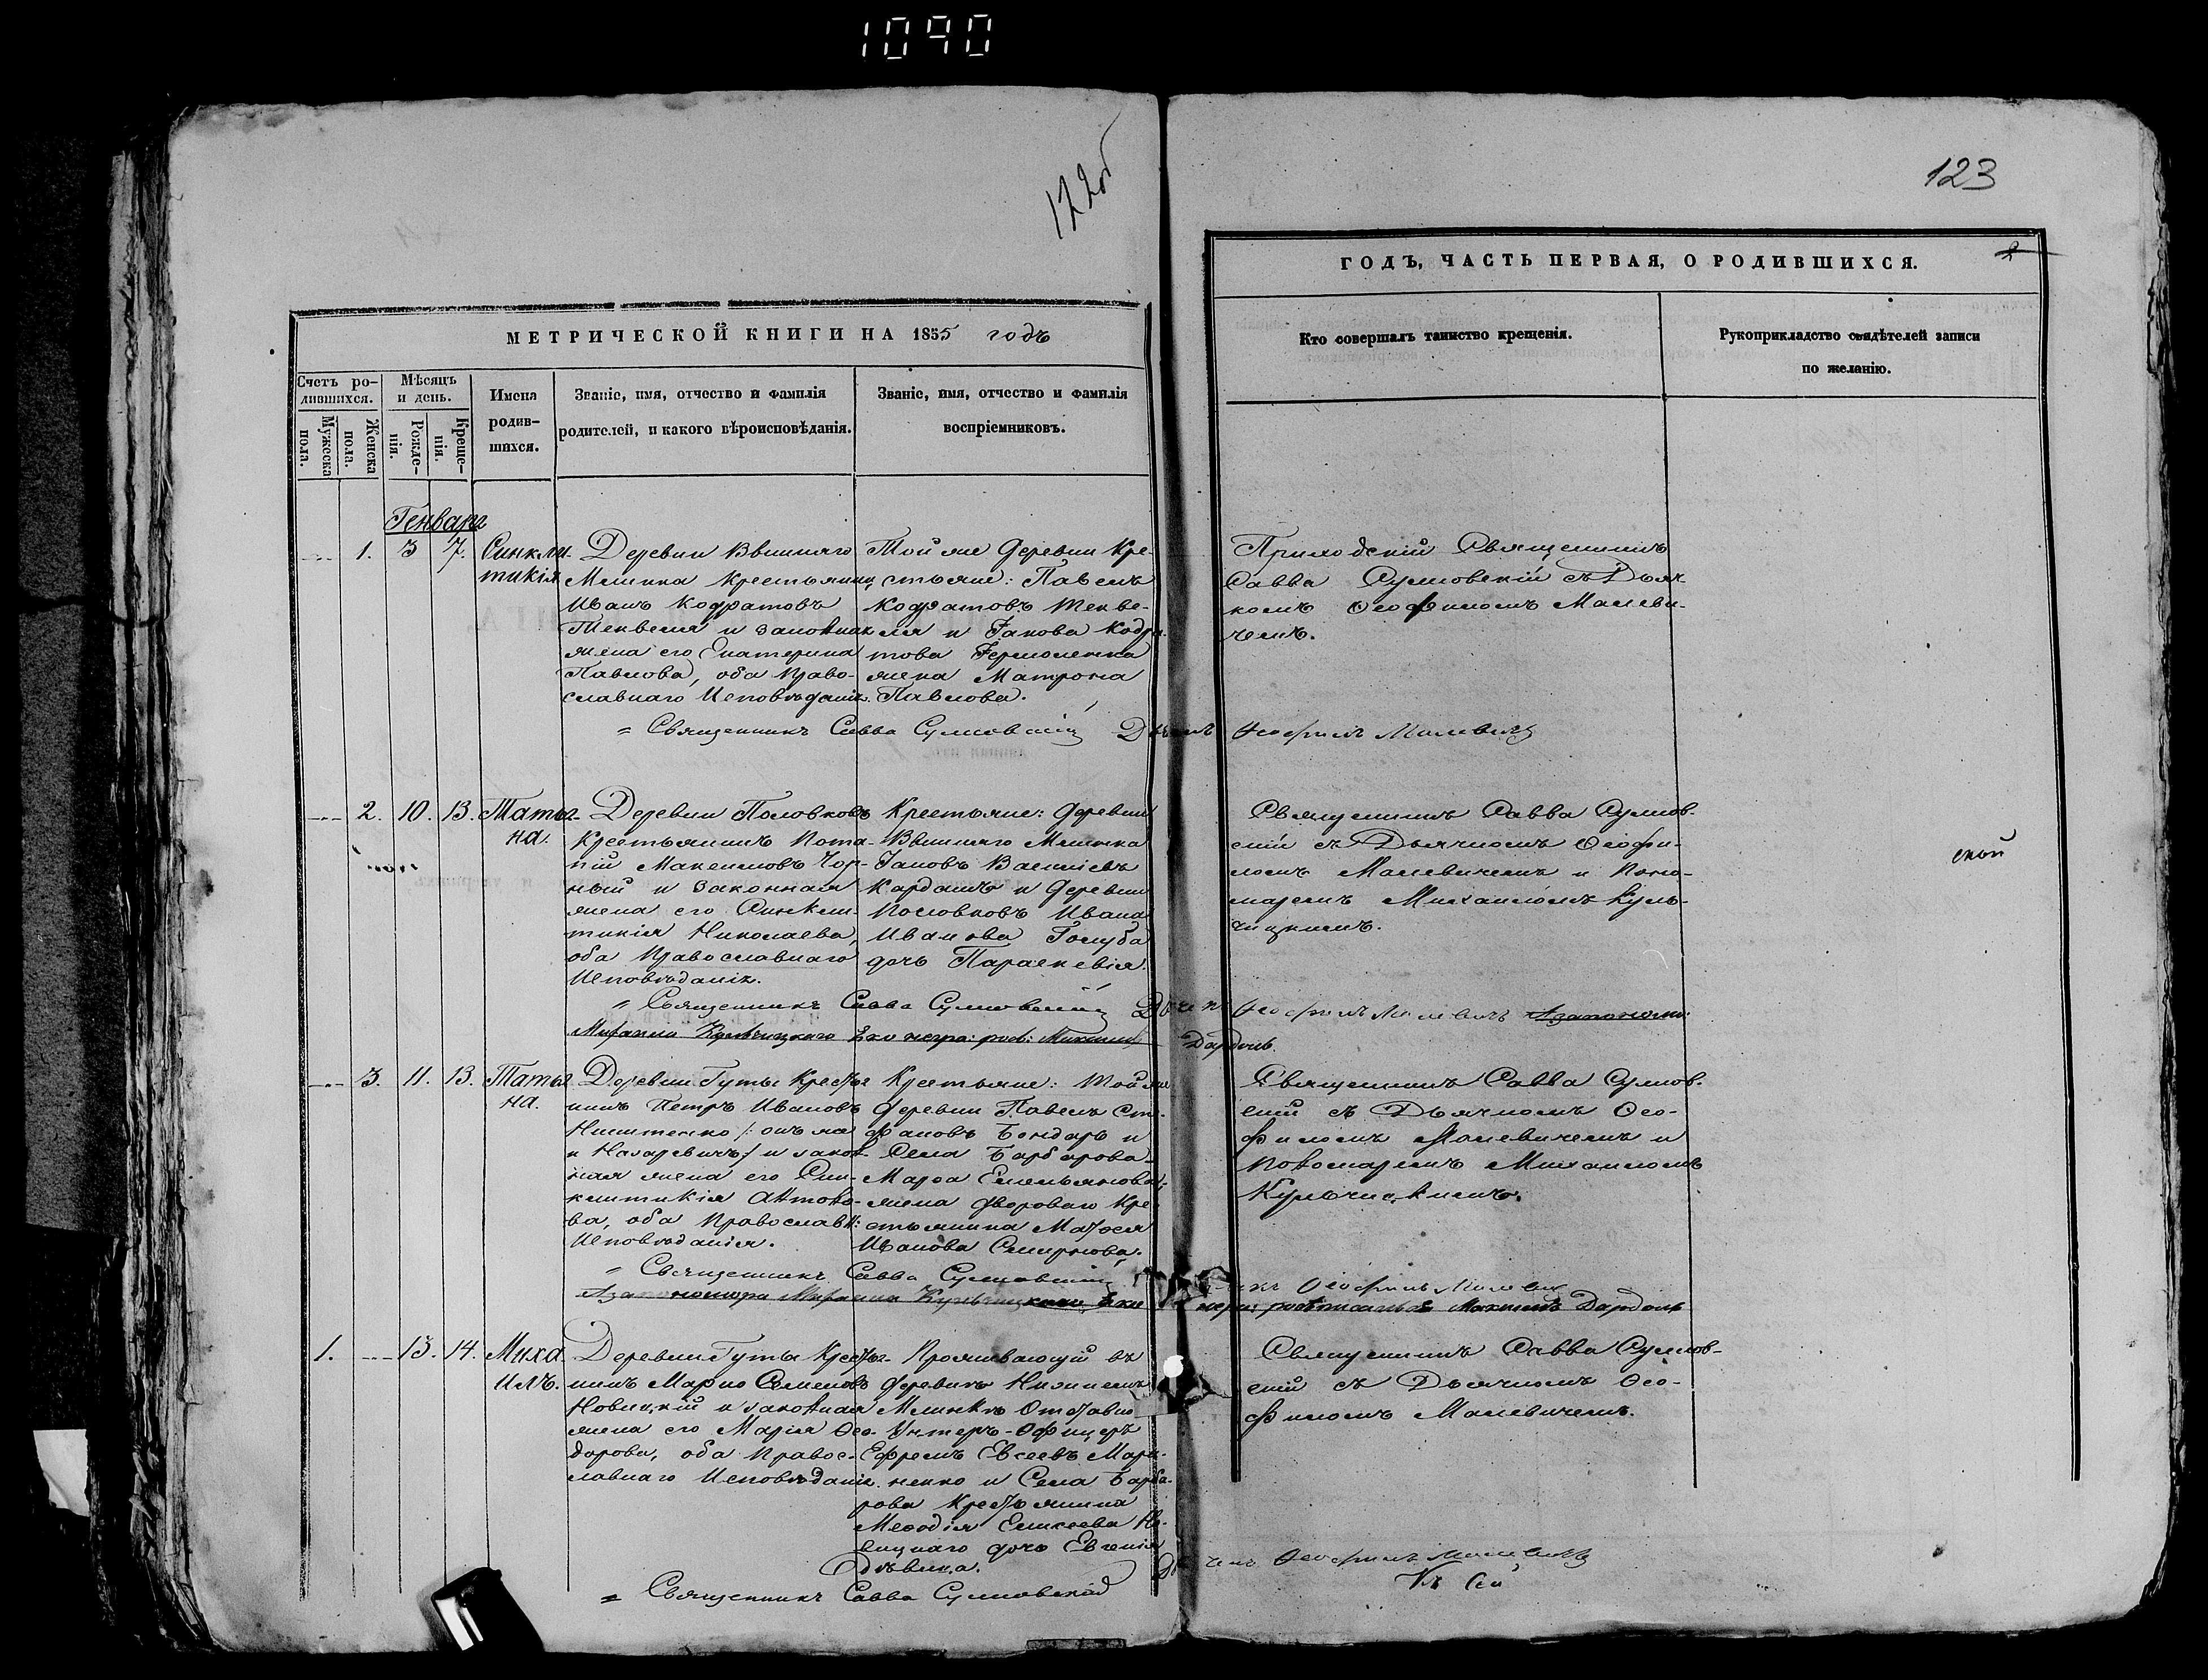 1090
122об
123
2
МЕТРИЧЕСКОЙ КНИГИ НА 1855 годъ
Счетъ ро-
дившихся.
Мужеска
пола.
Женска
пола.
Мѣсяцъ
и день.
Рожде-
нія.
Креще-
нія.
Имена
родив-
шихся.
Званіе, имя, отчество и фамилія
родителей, и какого вѣроисповѣданія.
Званіе, имя, отчество и фамилія
воспріемниковъ.
ГОДЪ, ЧАСТЬ ПЕРВАЯ, О РОДИВШИХСЯ.
Кто совершалъ таинство крещенія.
Рукоприкладство свидѣтелей записи
по желанію.
Генваря
1. 3 7.
Синкли-
тикія
Деревни Вышняго
Млинка крестьянинъ
Иванъ Кодратовъ
и законная
жена его Екатерина
Павлова, оба Право-
славнаго Исповѣданія.
Той же деревни Кре-
стьяне: Павелъ
Кодратовъ
и Іакова Кодра-
това Іермоленка
жена Матрона
Павлова.
Приходскій Священникъ
Савва Сулковскій съ Дьяч-
комъ Ѳеофиломъ Малеви-
чемъ.
Священникъ Савва Сулковскій Дьячекъ Ѳеофилъ Малевичъ
2. 10. 13.
Татья-
на.
Деревни Половковъ
Крестьянинъ Пота-
пій Максимовъ Чор-
ный и законная
жена его Синкли-
тикія Николаева,
оба Православнаго
Исповѣданія.
Крестьяне: деревни
Вышняго Млинка
Іаковъ Васильевъ
Кардашъ и деревни
Половковъ Ивана
Иванова Голуба
дочь Параскевія.
Священникъ Савва Сулков-
скій съ Дьячкомъ Ѳеофи-
ломъ Малевичемъ и Поно-
маремъ Михаиломъ Куль-
чицкимъ.
ской
Священникъ Савва Сулковскій Дьячекъ Ѳеофилъ Малевичъ
Михаила Кульчицкаго
3. 11. 13.
Татья-
на.
Деревни Гуты Крестья-
нинъ Петръ Ивановъ
/: онъ же
и Назаревичъ:/ и закон-
ная жена его Син-
клитикія Антоно-
ва, оба Православн:
Исповѣданія.
Крестьяне: Той же
деревни Павелъ Сте-
фановъ Бондарь и
Села Барбарова
Марѳа Емельянова,
жена двороваго Кре-
стьянина Матѳея
Иванова Смирнова.
Священникъ Савва Сулков-
скій съ Дьячкомъ Ѳео-
филомъ Малевичемъ и
Пономаремъ Михаиломъ
Кульчицкимъ.
Священникъ Савва Сулковскій Ѳеофилъ Малевичъ
Михаила Кульчицкаго
1. 13. 14.
Миха-
илъ.
Деревни Гуты Крестья-
нинъ Марко Семеновъ
Новицкій и законная
жена его Марія Ѳео-
дорова, оба Правос-
лавнаго Исповѣданія.
Проживающій въ
деревнѣ Нижнемъ
Млинкѣ Отставной
Унтеръ-Офицеръ
Ефремъ Евсеевъ Мари-
ненко и Села Барба-
рова Крестьянина
Меѳодія Елисеева Но-
вицкаго дочь Евгенія
Дѣвица.
Священникъ Савва Сулков-
скій съ Дьячкомъ Ѳео-
филомъ Малевичемъ.
Священникъ Савва Сулковскій
Дьячекъ Ѳеофилъ Малевичъ
Къ сей